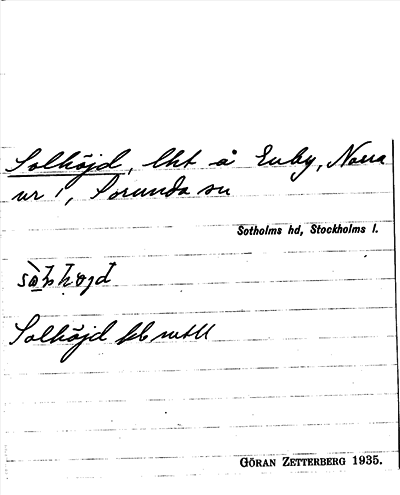 Solhöjd, lht å Enby, Norra
nr 1, Sorunda sn
Sotholms hd, Stockholms l.
Solhöjd
GÖRAN ZETTERBERG 1935.